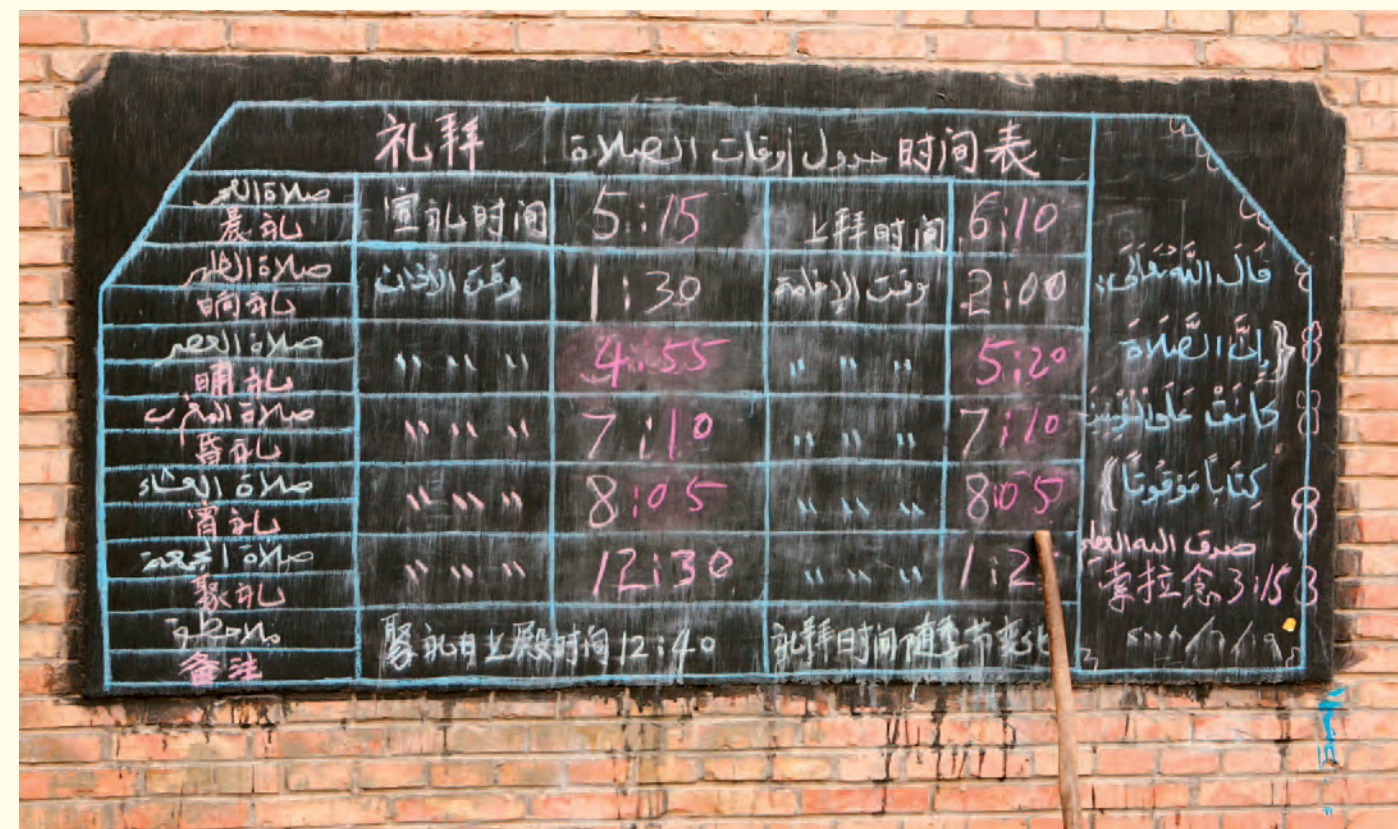 礼拜 جدول أوقات الصلاة 时间表
صلاة الفجر 宣礼时间 5:15 上拜时间 6:10
晨礼
صلاة الظهر وقت الأذان 1:30 وقت الإقامة 2:00
晌礼
صلاة العصر " " " 4:55 " " " 5:20
晡礼
صلاة المغرب " " " 7:10 " " " 7:10
昏礼
صلاة العشاء " " " 8:05 " " " 8:05
宵礼
صلاة الجمعة " " " 12:30 " " " 1:2
聚礼
ملاحظة 聚礼日上殿时间12:40 礼拜时间随季节变化
备注
قَالَ اللَّهُ تَعَالَى:
{إِنَّ الصَّلَاةَ
كَانَتْ عَلَى الْمُؤْمِنِينَ
كِتَابًا مَوْقُوتًا}
صدق الله العظيم
拿拉念3:15